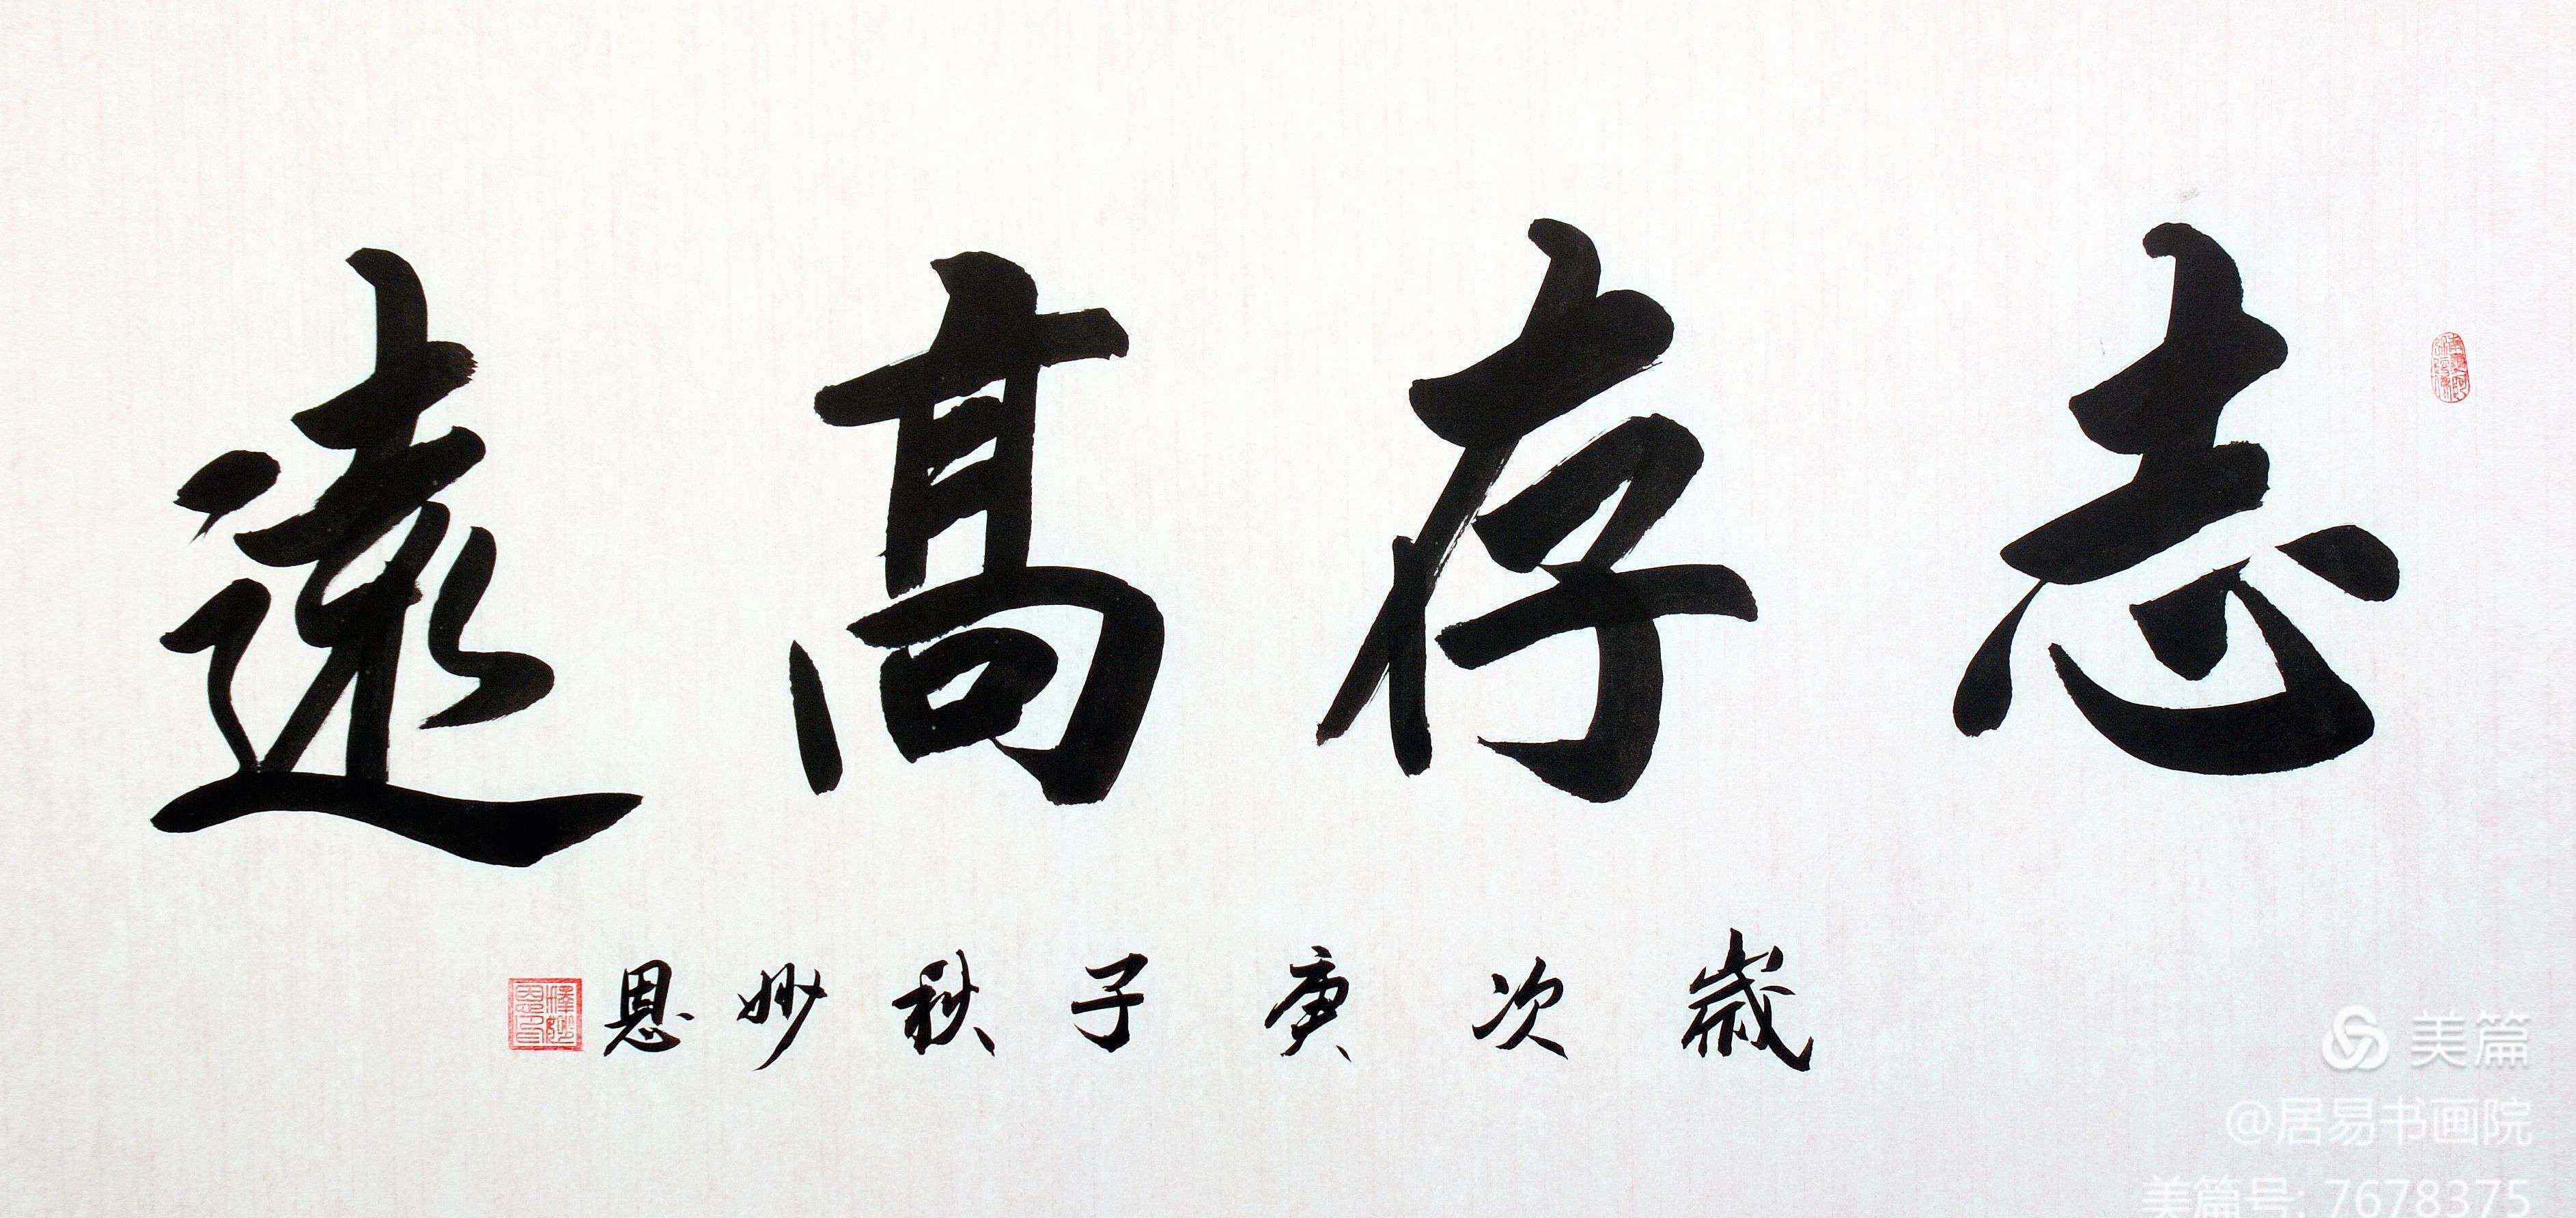 志存高遠
歲次庚子秋妙恩
美篇
@居易书画院
美篇号: 7678375